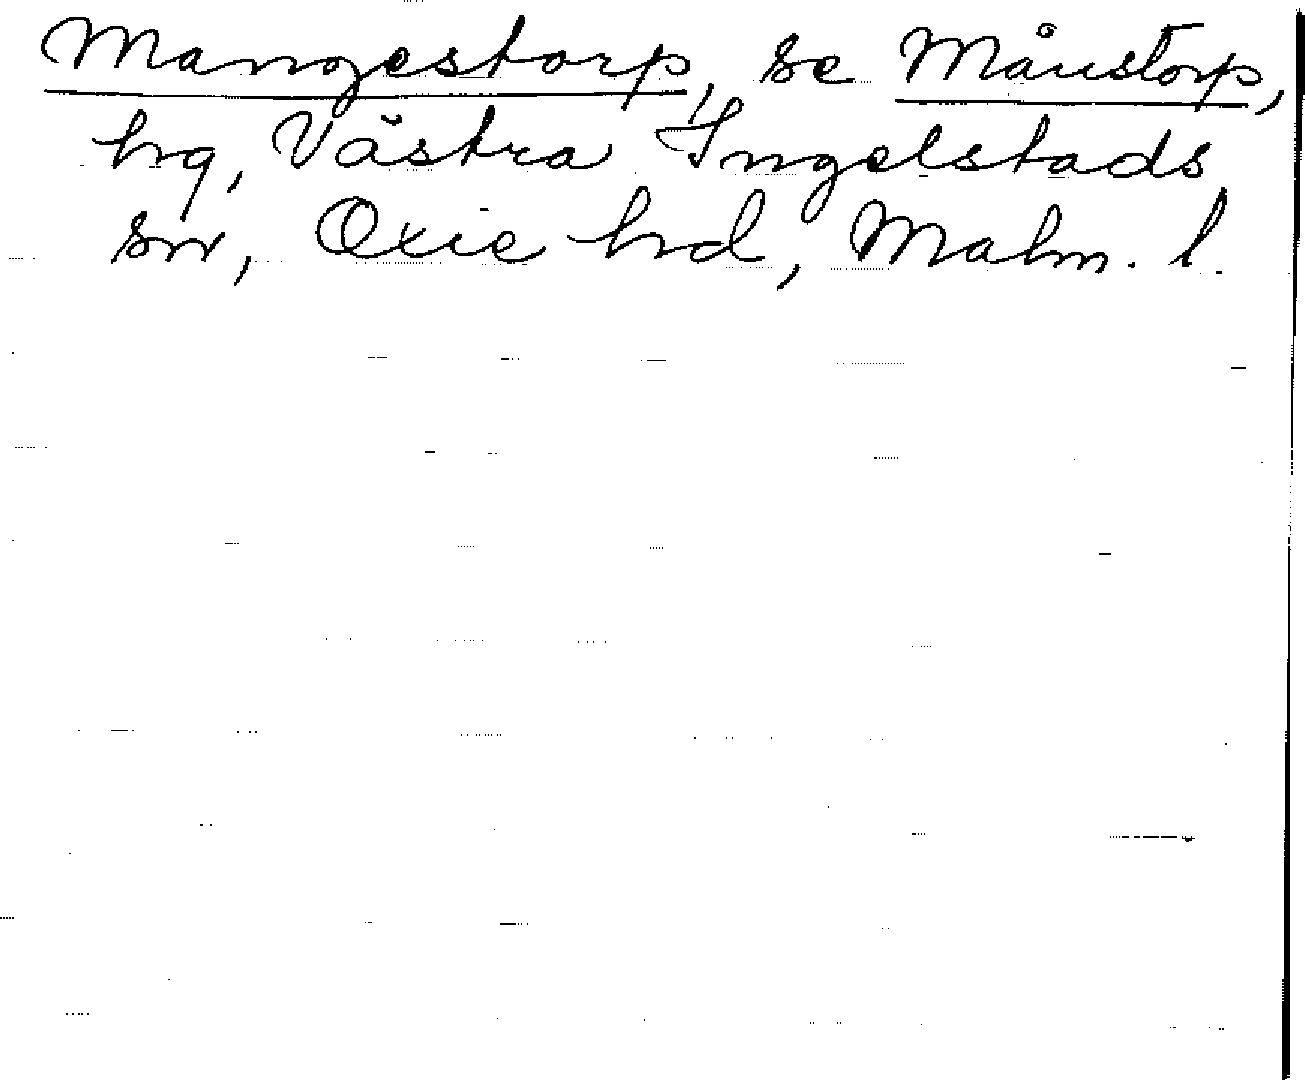 Mangestorp, se Månstorp,
hg, Västra Ingelstads
sn, Oxie hd, Malm. l.